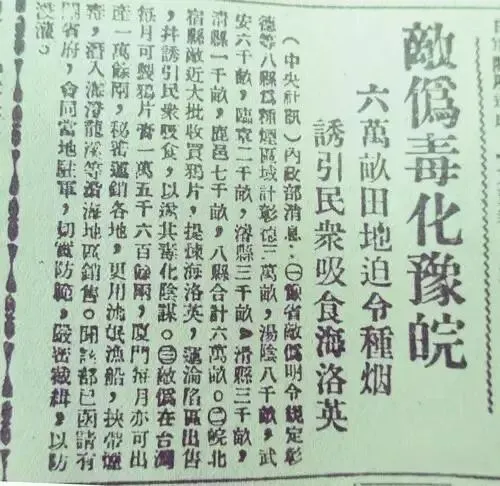 敵僞毒化豫皖
六萬畝田地迫令種烟
誘引民衆吸食海洛英
（中央社訊）內政部消息：㊀豫省敵僞明令規定彰
德等八縣爲種煙區域計彰德三萬畝，湯陰八千畝，武
安六千畝，臨章二千畝，濬縣三千畝，滑縣三千畝，
淸縣一千畝，鹿邑七千畝，八縣合計六萬畝。㊁皖北
宿縣敵近大批收買鴉片，提煉海洛英，運淪陷區出售
，幷誘引民衆吸食，以遂其毒化陰謀。㊂敵僞在台灣
每月可製鴉片膏一萬五千六百餘兩，廈門每月亦可出
產一萬餘兩，秘密運銷各地，更用漁民漁船，挾帶煙
毒，潛入海澄龍溪等沿海地區銷售。聞該部已函請有
關省府，會同當地駐軍，切實防範，嚴密截緝，以防